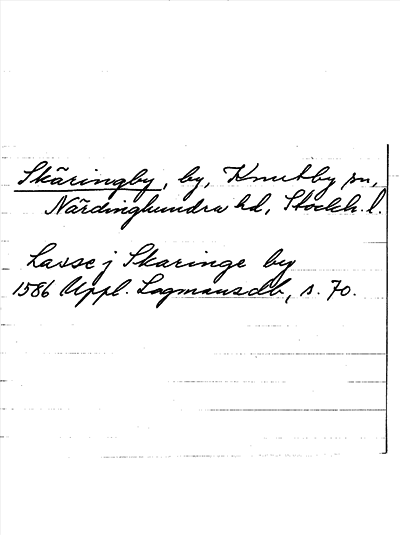 Skäringby, by, Knutby sn,
Närdinghundra hd, Stockh. l.
Lasse j Skaringe by
1586 Uppl. Lagmansdb, s. 70.